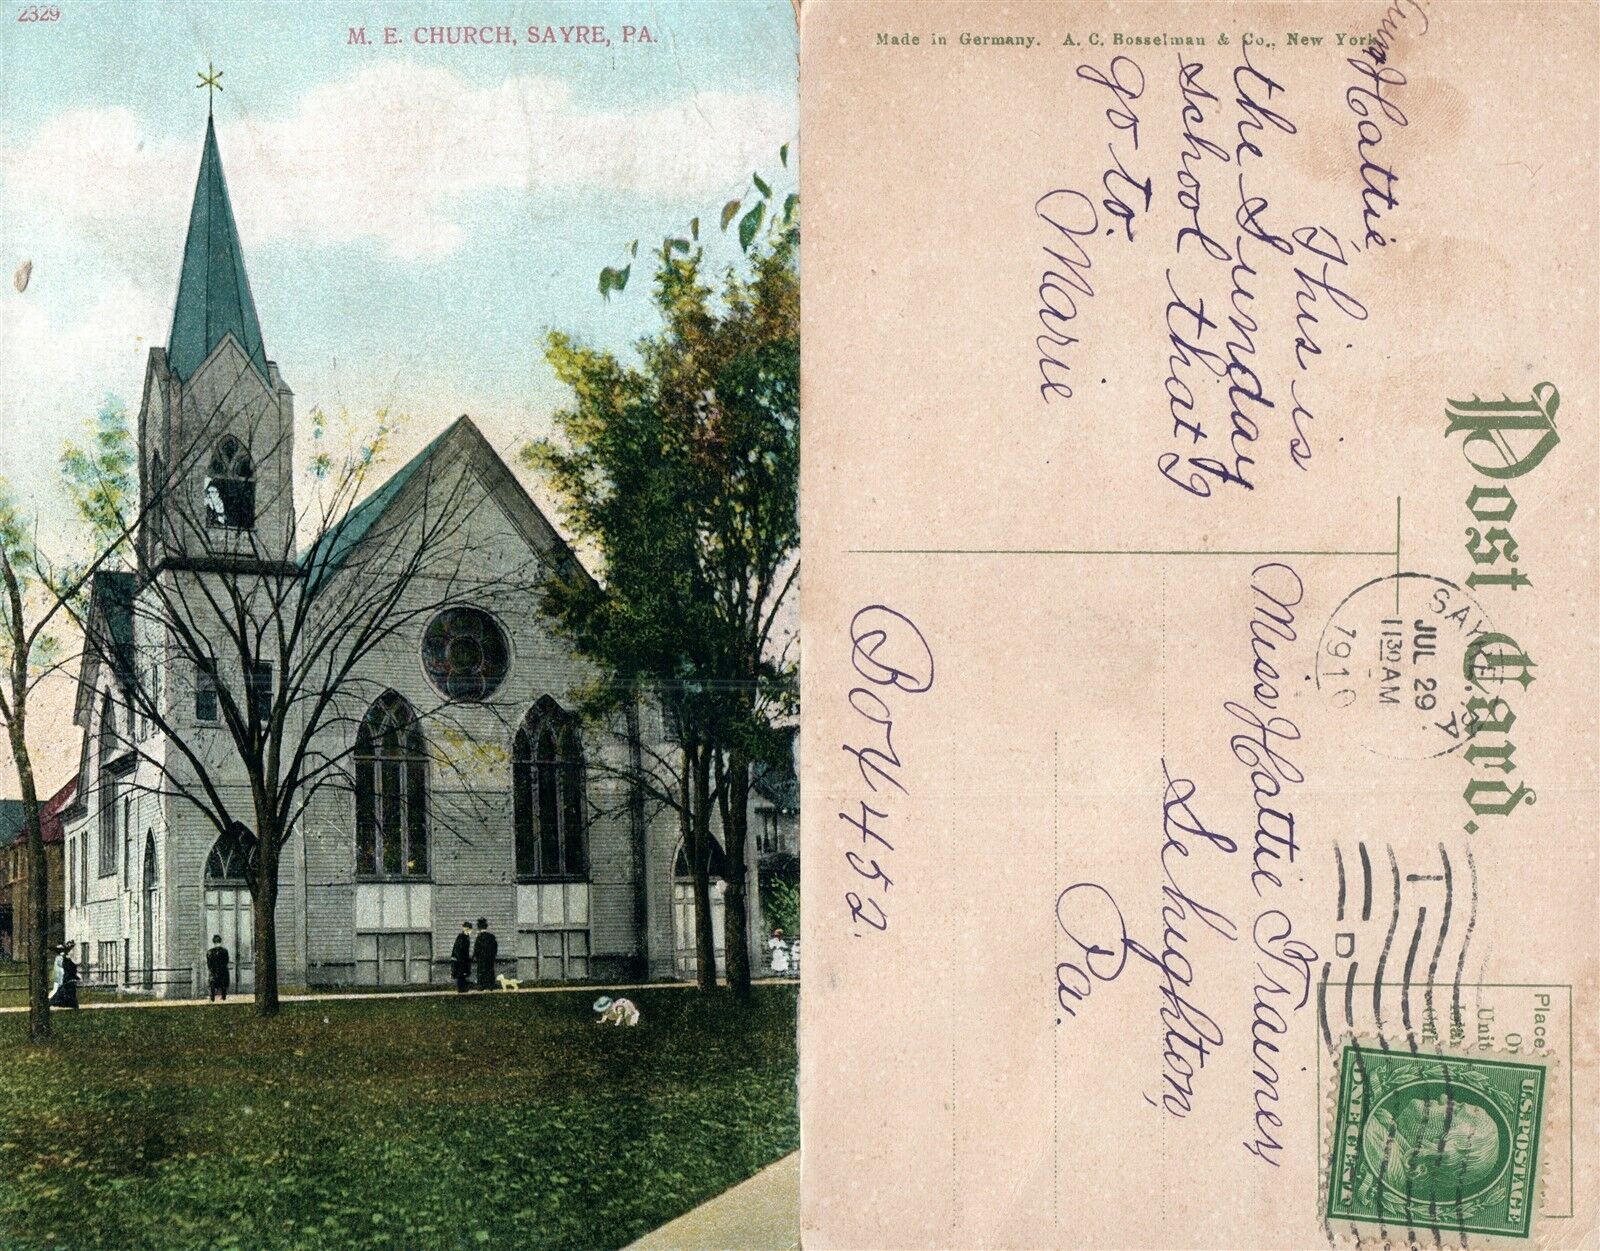 2329
M. E. CHURCH, SAYRE, PA.
Made in Germany. A. C. Bosselman & Co., New York
Post Card.
Hattie
This is
the Sunday
school that I
go to.
Marie
SAYRE, PA.
JUL 29
1130 AM
1910
Place
Unit
U.S. POSTAGE
ONE CENT
Miss Hattie Trainer,
Lehighton,
Pa.
Box 452.